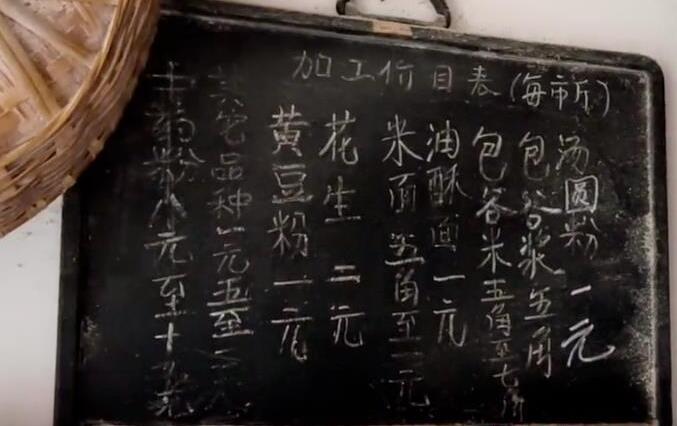 加工价目表(每市斤)
汤圆粉一元
包谷浆五角
包谷米五角至七角
油酥面一元
米面五角至一元
花生二元
黄豆粉一元
其它品种一元五至二元
中药粉八元至十元